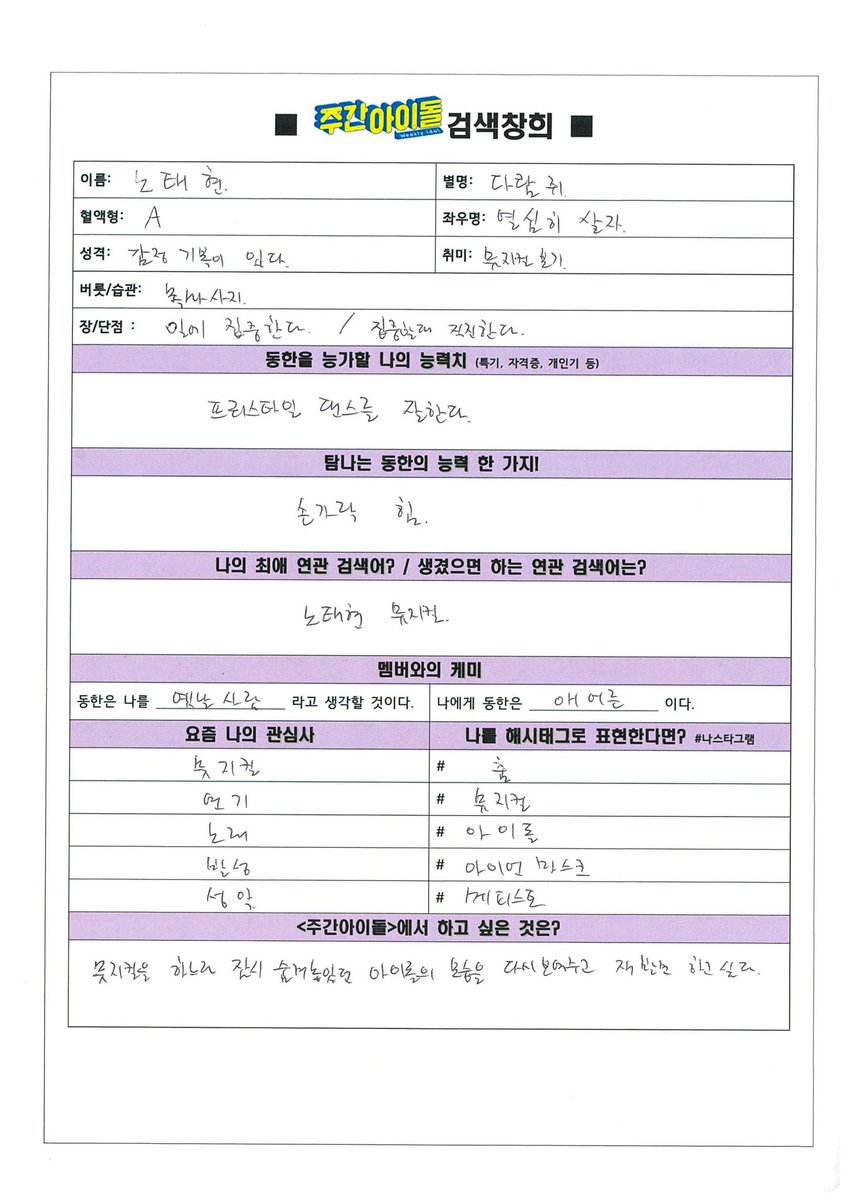 ■ 주간아이돌 Weekly Idol 검색창희 ■
이름: 노태현. 별명: 다람쥐.
혈액형: A 좌우명: 열심히 살자.
성격: 감정 기복이 있다. 취미: 뮤지컬 보기.
버릇/습관:
장/단점 : 일에 집중한다. / 집중할때 직진한다.
동한을 능가할 나의 능력치 (특기, 자격증, 개인기 등)
프리스타일 댄스를 잘한다.
탐나는 동한의 능력 한 가지!
손가락 힘.
나의 최애 연관 검색어? / 생겼으면 하는 연관 검색어는?
노태현 뮤지컬.
멤버와의 케미
동한은 나를 옛날 사람 라고 생각할 것이다. 나에게 동한은 애어른 이다.
요즘 나의 관심사 나를 해시태그로 표현한다면? #나스타그램
뮤지컬 # 춤
연기 # 뮤지컬
노래 # 아이돌
발성 # 아이언 마스크
성악 # 메피스토
<주간아이돌>에서 하고 싶은 것은?
뮤지컬을 하느라 잠시 숨겨놓았던 아이돌의 모습을 다시보여주고 재 하고싶다.